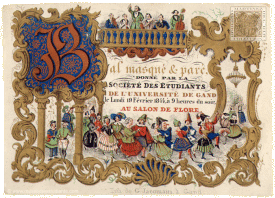 Bal masqué & paré,
DONNÉ PAR LA
SOCIÉTÉ DES ÉTUDIANTS
DE L'UNIVERSITÉ DE GAND
le Lundi 19 Février 1844, à 9 heures du soir,
AU SALON DE FLORE